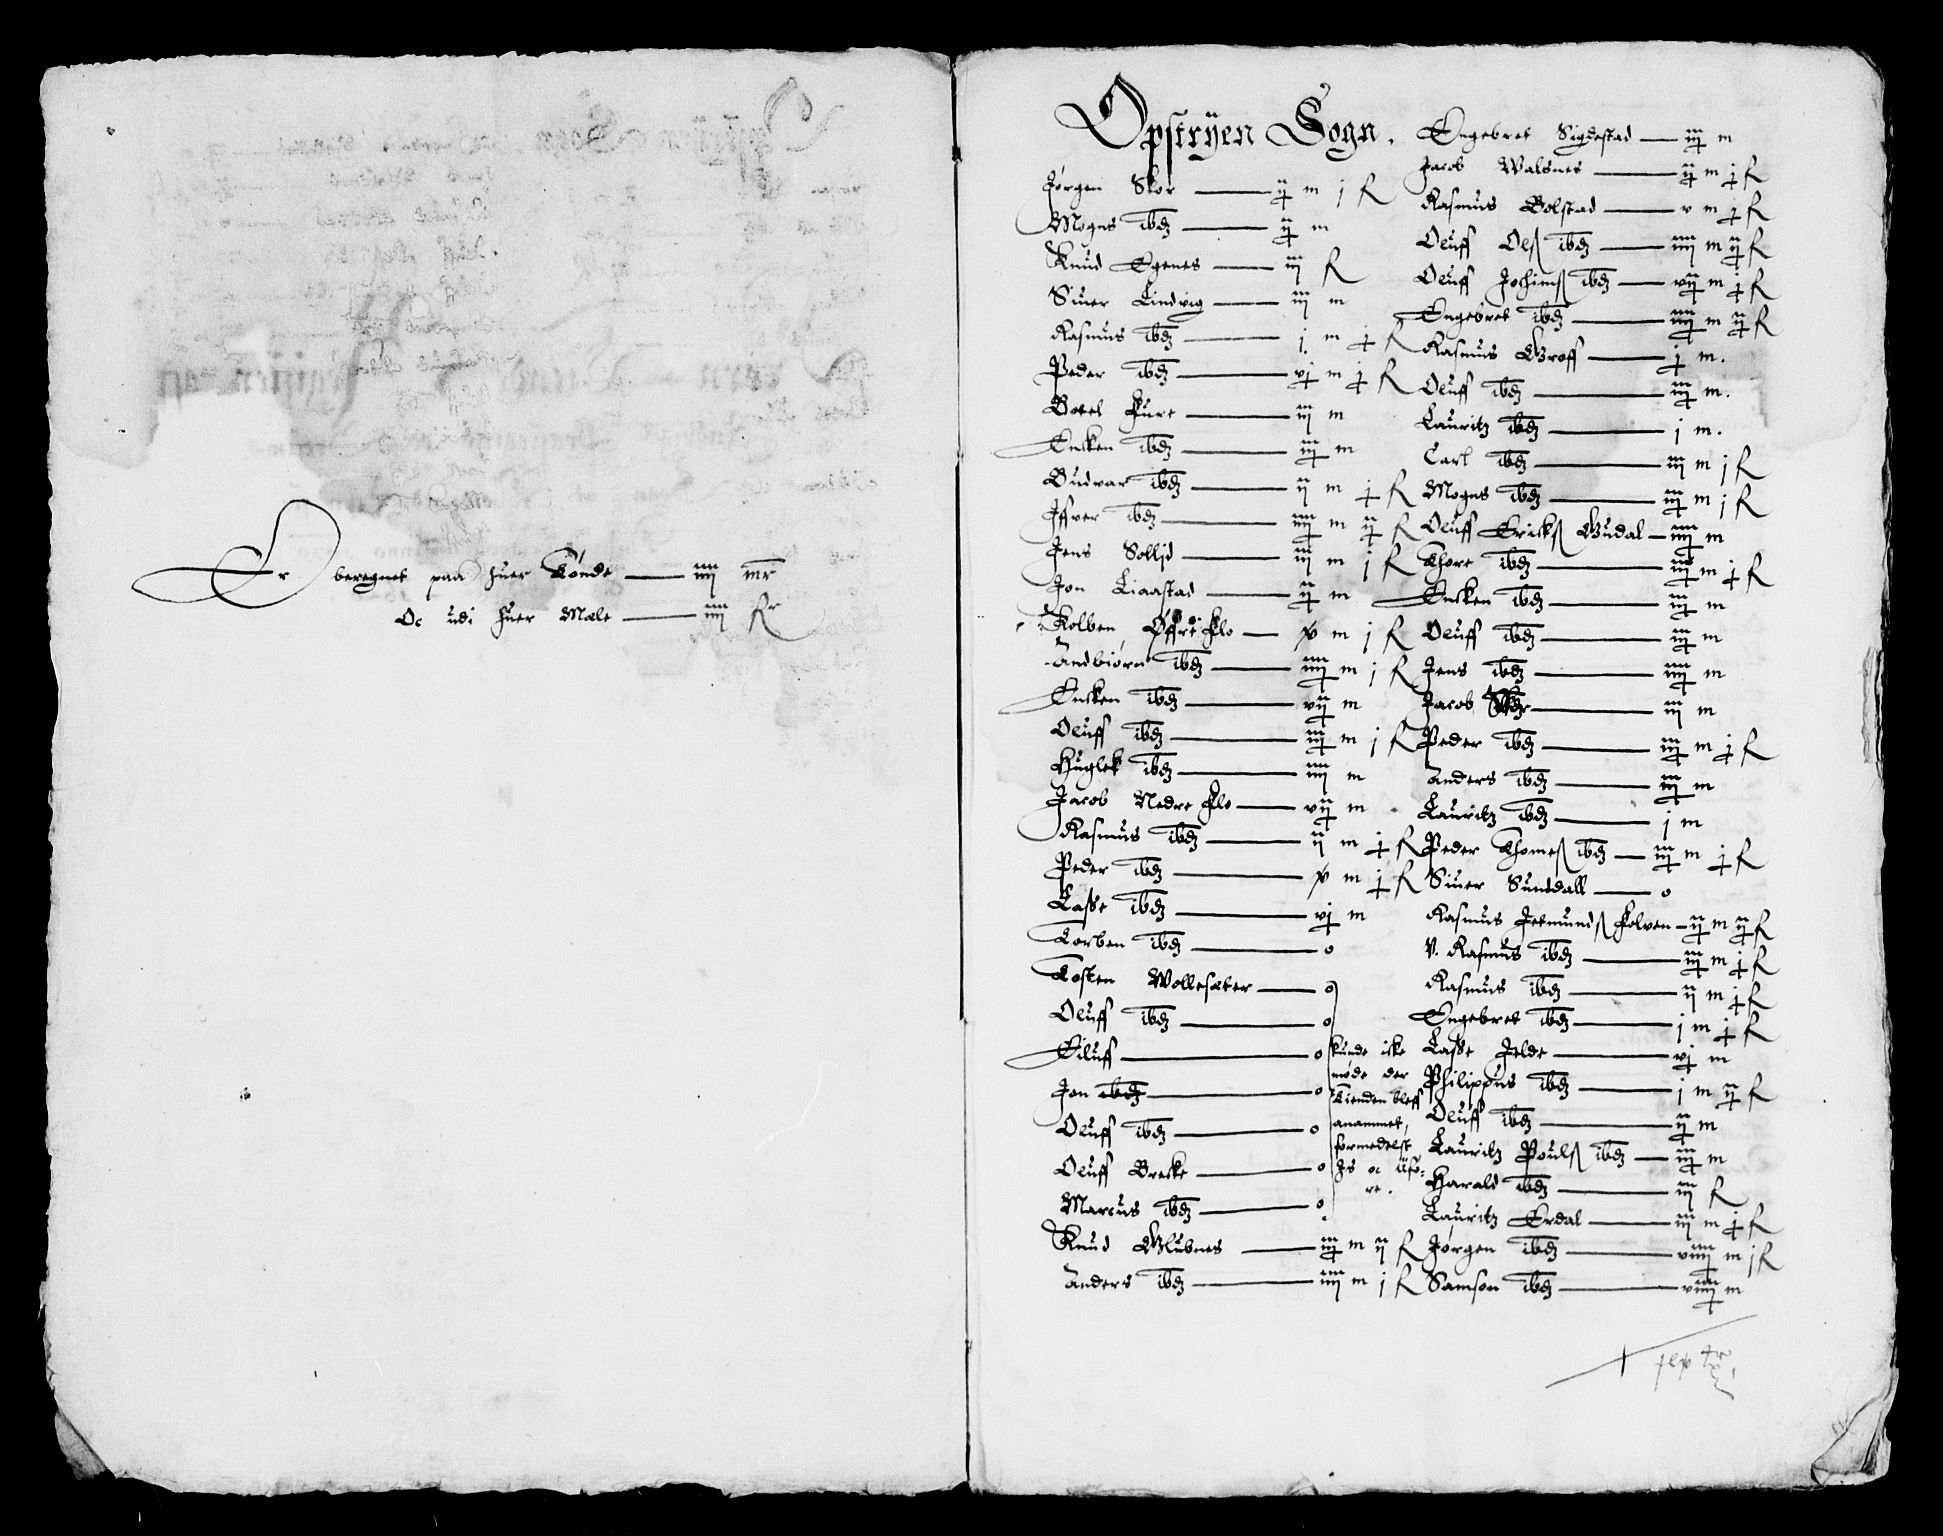 Er beregnet paa huer Tønde — iiij mr
Oc udi huer Mæle — iiij Rr
Opstryen Sogn.
Jørgen Skor — ij m j R
Mogns ibd — ij m
Knud Egenes — iij R
Siuer Lindvig — iij m
Rasmus ibd — j m j R
Peder ibd — vj m j R
Botel Fure — iij m
Encken ibd — iij m
Gudvar ibd — ij m j R
Iffver ibd — iiij m ij R
Jens Sollid — iij m j R
Jon Liaastad — ij m
Kolben Øffre Flo — x m j R
Andbiørn ibd — iiij m j R
Encken ibd — vij m
Oluff ibd — iij m j R
Huglek ibd — iiij m
Jacob Nedre Flo — vij m
Rasmus ibd — ij m j R
Peder ibd — x m j R
Lasse ibd — vj m
Torben ibd — o
Tosten Wollesæter — o
Oluff ibd — o
Eiluff — o
Jon ibd — o
Oluff ibd — o
Oluff Brecke — o
Marcus ibd — o
kunde icke
møde der
Tienden bleff
anammet,
formedelst
Is oc Uføre.
Knud Glubnes — iij m ij R
Anders ibd — iiij m j R
Engebret Sigdestad — iij m
Jacob Walsnes — ij m j R
Rasmus Bolstad — v m j R
Oluff Ols ibd — iiij m ij R
Oluff Jochims ibd — vij m j R
Engebret ibd — iiij m ij R
Rasmus Groff — j m.
Oluff ibd — iij m.
Lauritz ibd — j m.
Carl ibd — iij m j R
Mogns ibd — iij m j R
Oluff Ericks Gudal — iiij m
Thore ibd — iij m j R
Encken ibd — iij m
Oluff ibd — iij m
Jens ibd — iiij m
Jacob — iij m
Peder ibd — iij m j R
Anders ibd — iij m
Lauritz ibd — j m
Peder Thomes ibd — iij m j R
Siuer Sunddall — o
Rasmus Jetmunds Folven — ij m ij R
V. Rasmus ibd — iij m j R
Rasmus ibd — ij m j R
Engebret ibd — j m j R
Lasse Jelde — vj m
Philippus ibd — j m ij R
Oluff ibd — ij m
Lauritz Pouls ibd — iij m
Harald ibd — iij R
Lauritz Erdal — iij m j R
Jørgen ibd — viiij m j R
Samson ibd — viiij m